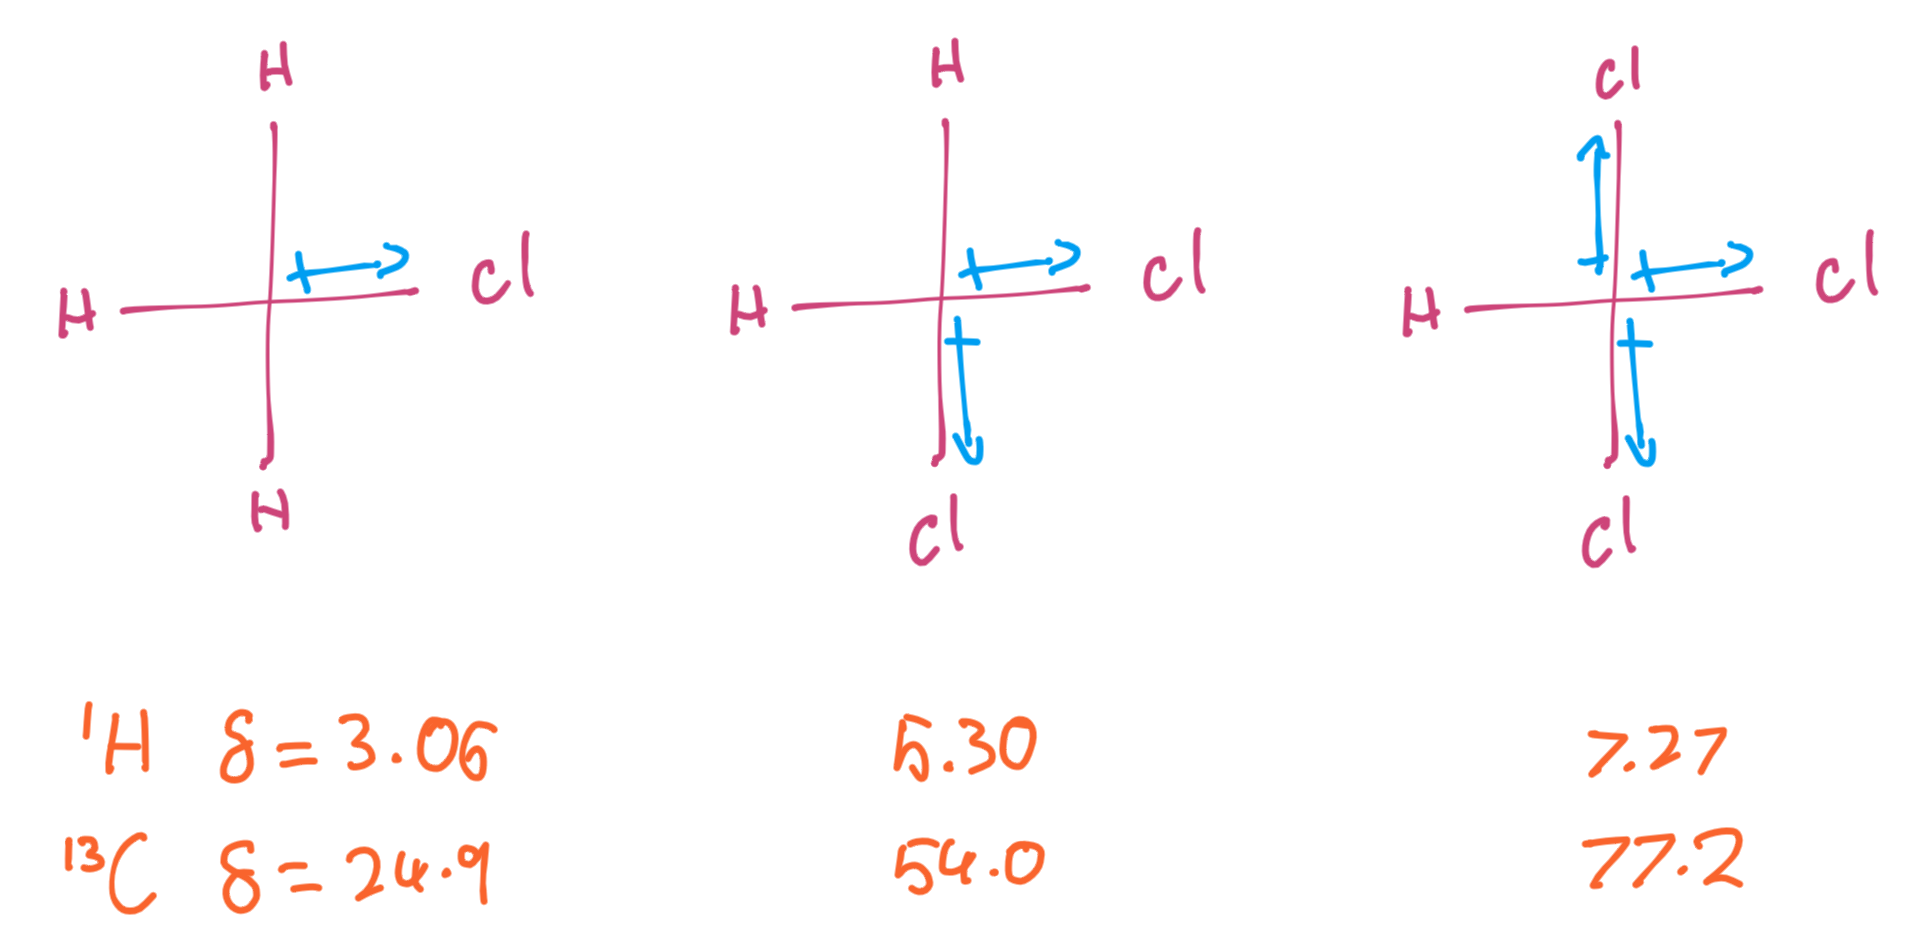 H H Cl
H Cl H Cl Cl
H H Cl
H Cl Cl
¹H δ = 3.06 5.30 7.27
¹³C δ = 24.9 54.0 77.2